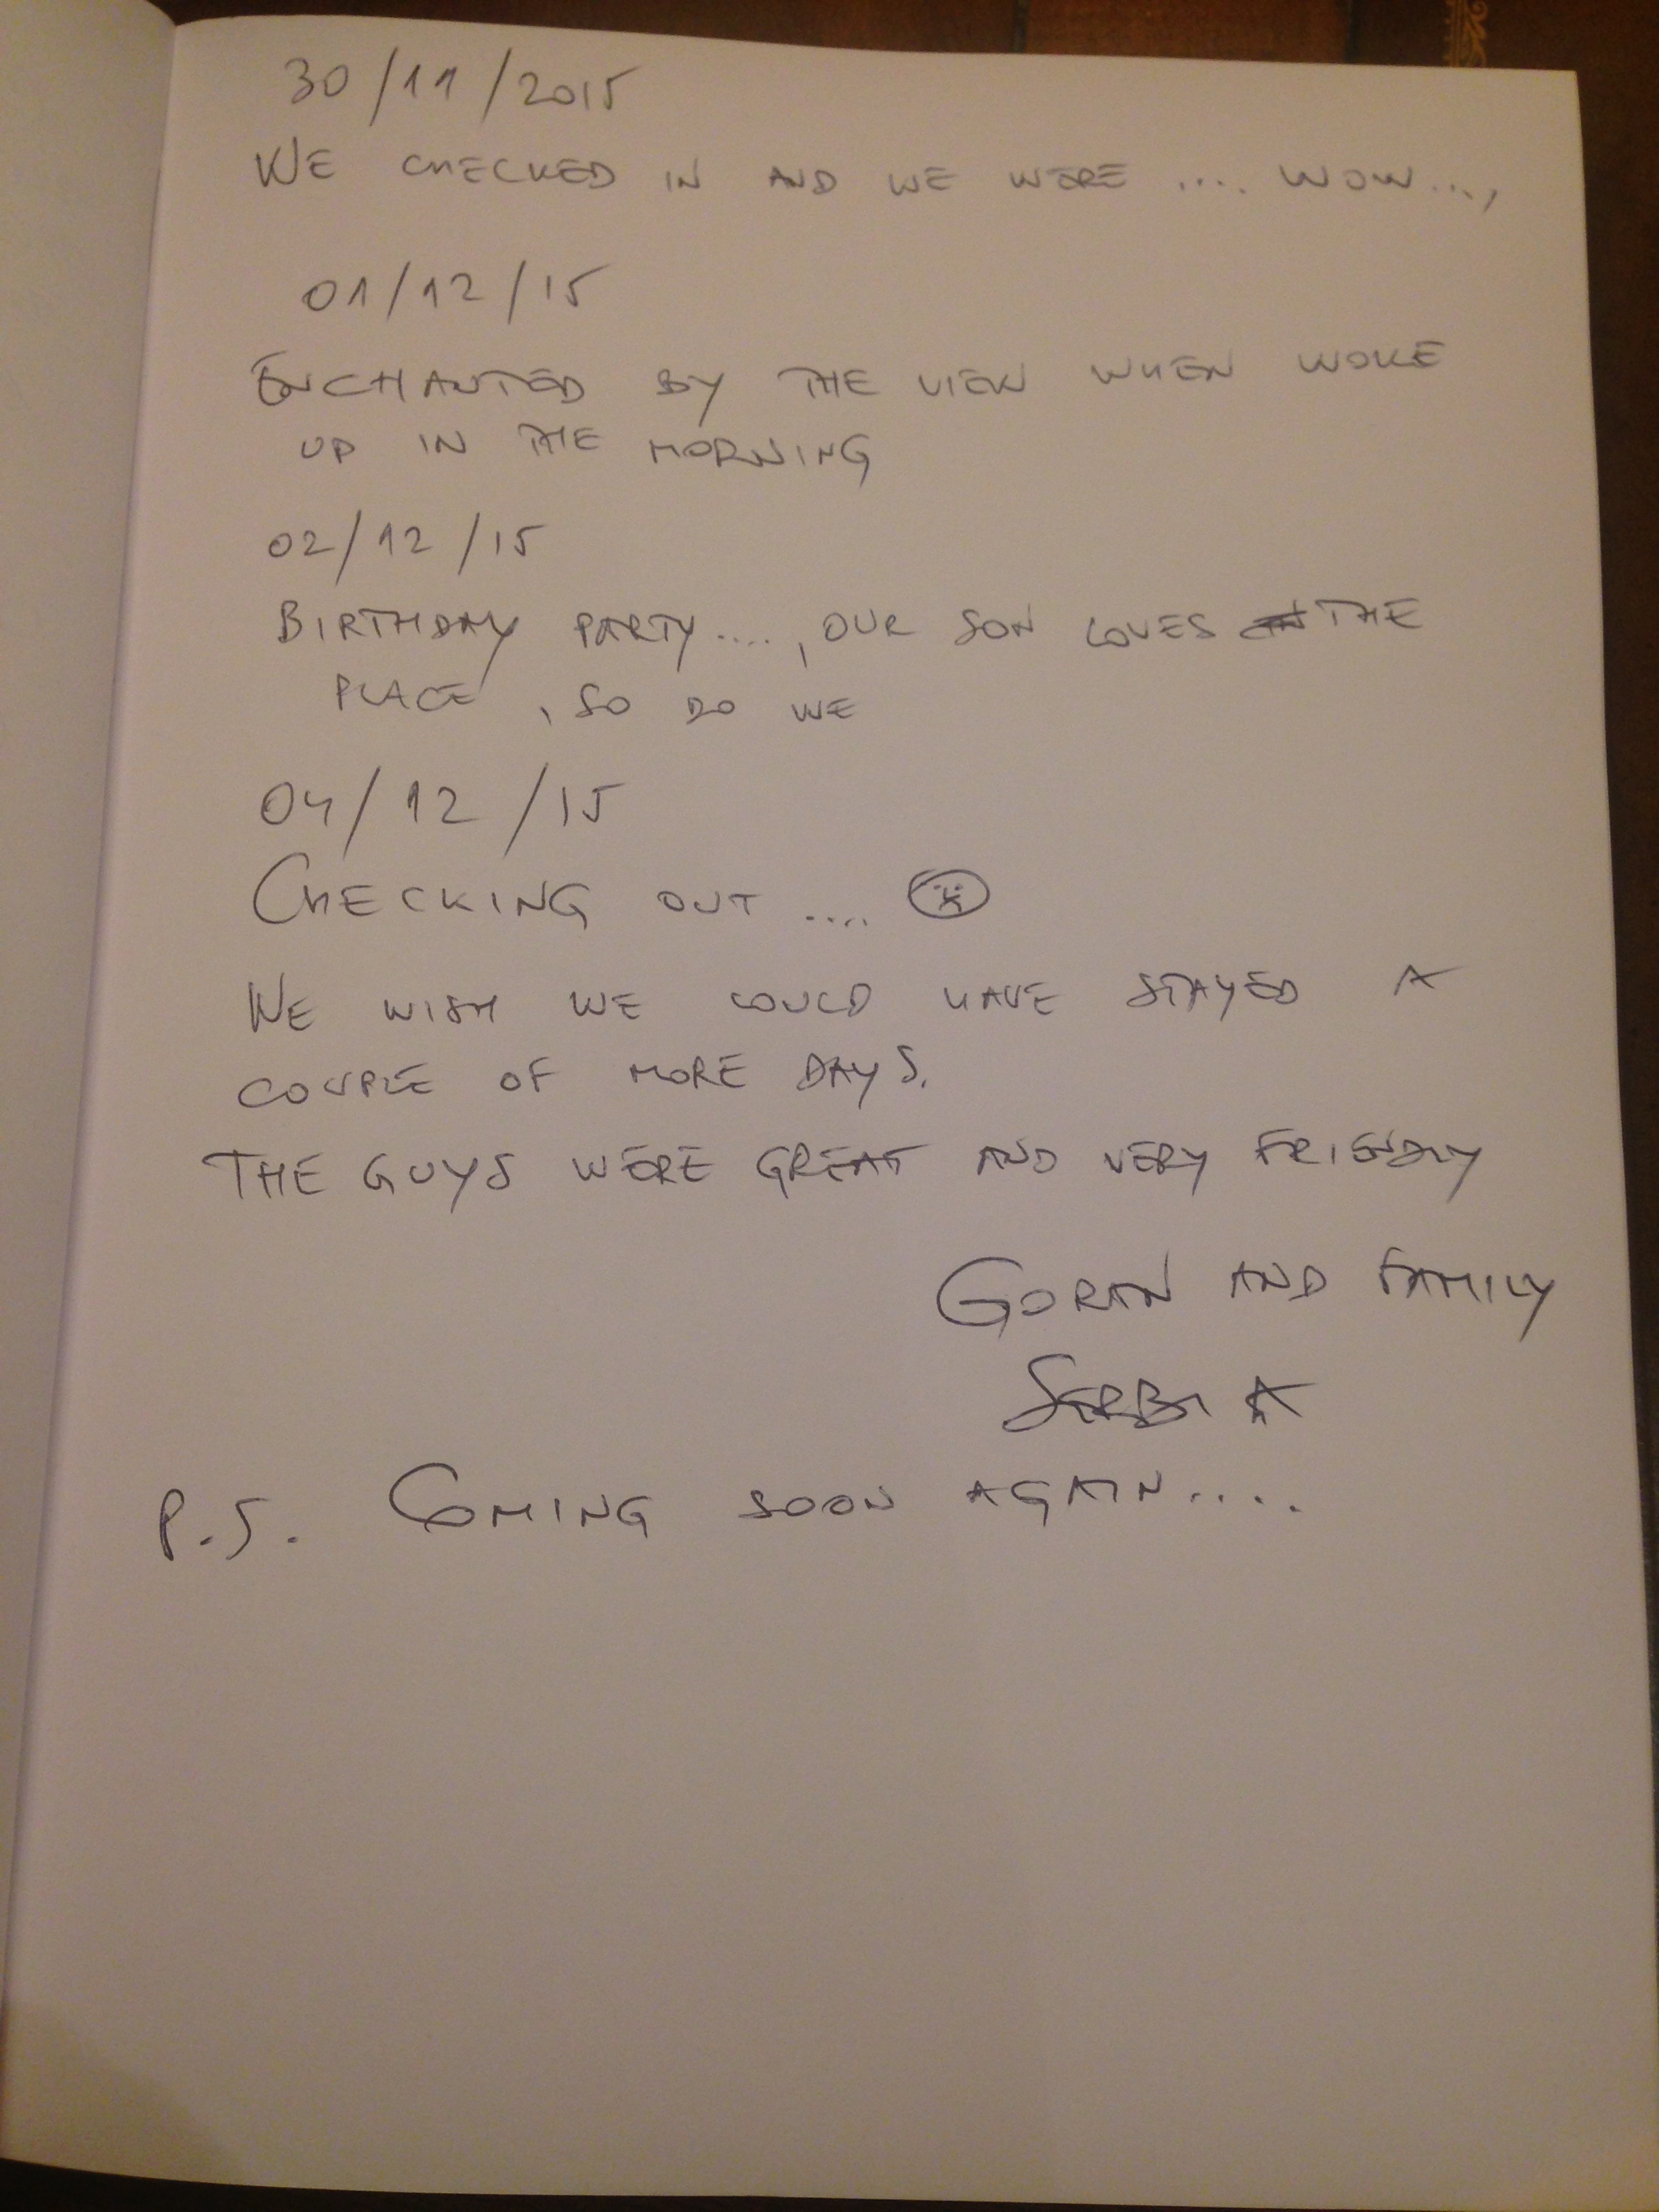 30/11/2015
WE CHECKED IN AND WE WERE .... WOW...,
01/12/15
ENCHANTED BY THE VIEW WHEN WOKE
UP IN THE MORNING
02/12/15
BIRTHDAY PARTY...., OUR SON LOVES THE
PLACE, SO DO WE
04/12/15
CHECKING OUT ....
WE WISH WE COULD HAVE STAYED A
COUPLE OF MORE DAYS.
THE GUYS WERE GREAT AND VERY FRIENDLY
GORAN AND FAMILY
SERBIA
P.S. COMING SOON AGAIN....